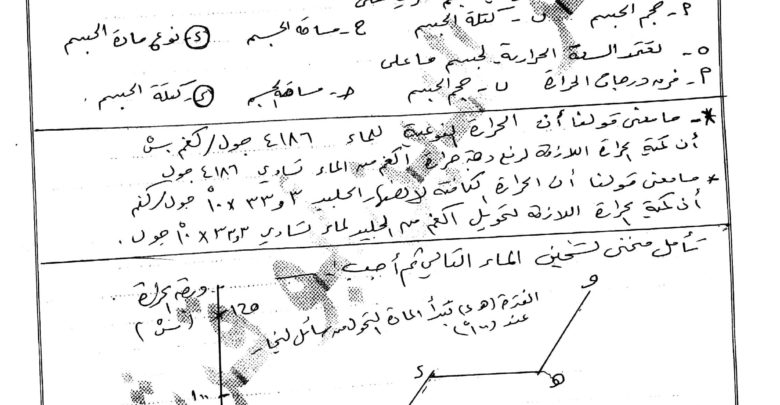 أ- حجم الجسم ب- كتلة الجسم ج- مساحة الجسم د- نوع مادة الجسم
٥- تعتمد السعة الحرارية لجسم ما على
أ- فرق درجات الحرارة ب- حجم الجسم ج- مساحة الجسم د- كتلة الجسم.
*- ما معنى قولنا أن الحرارة النوعية للماء ٤١٨٦ جول/كغم.سْ
أن كمية الحرارة اللازمة لرفع درجة حرارة ١كغم من الماء تساوي ٤١٨٦ جول
* ما معنى قولنا أن الحرارة الكامنة لانصهار الجليد ٣و٣٣×١٠ْ جول/كغم
أن كمية الحرارة اللازمة لتحويل ١كغم من الجليد لماء تساوي ×١٠ْ جول.
تأمل منحنى تسخين الماء التالي ثم أجب:
درجة الحرارة
(سْ)
١٢٥
الفترة (د هـ) تبدأ المادة التحول من سائل لبخار
عند (١٠٠ْ)
و
د
هـ
١٠٠